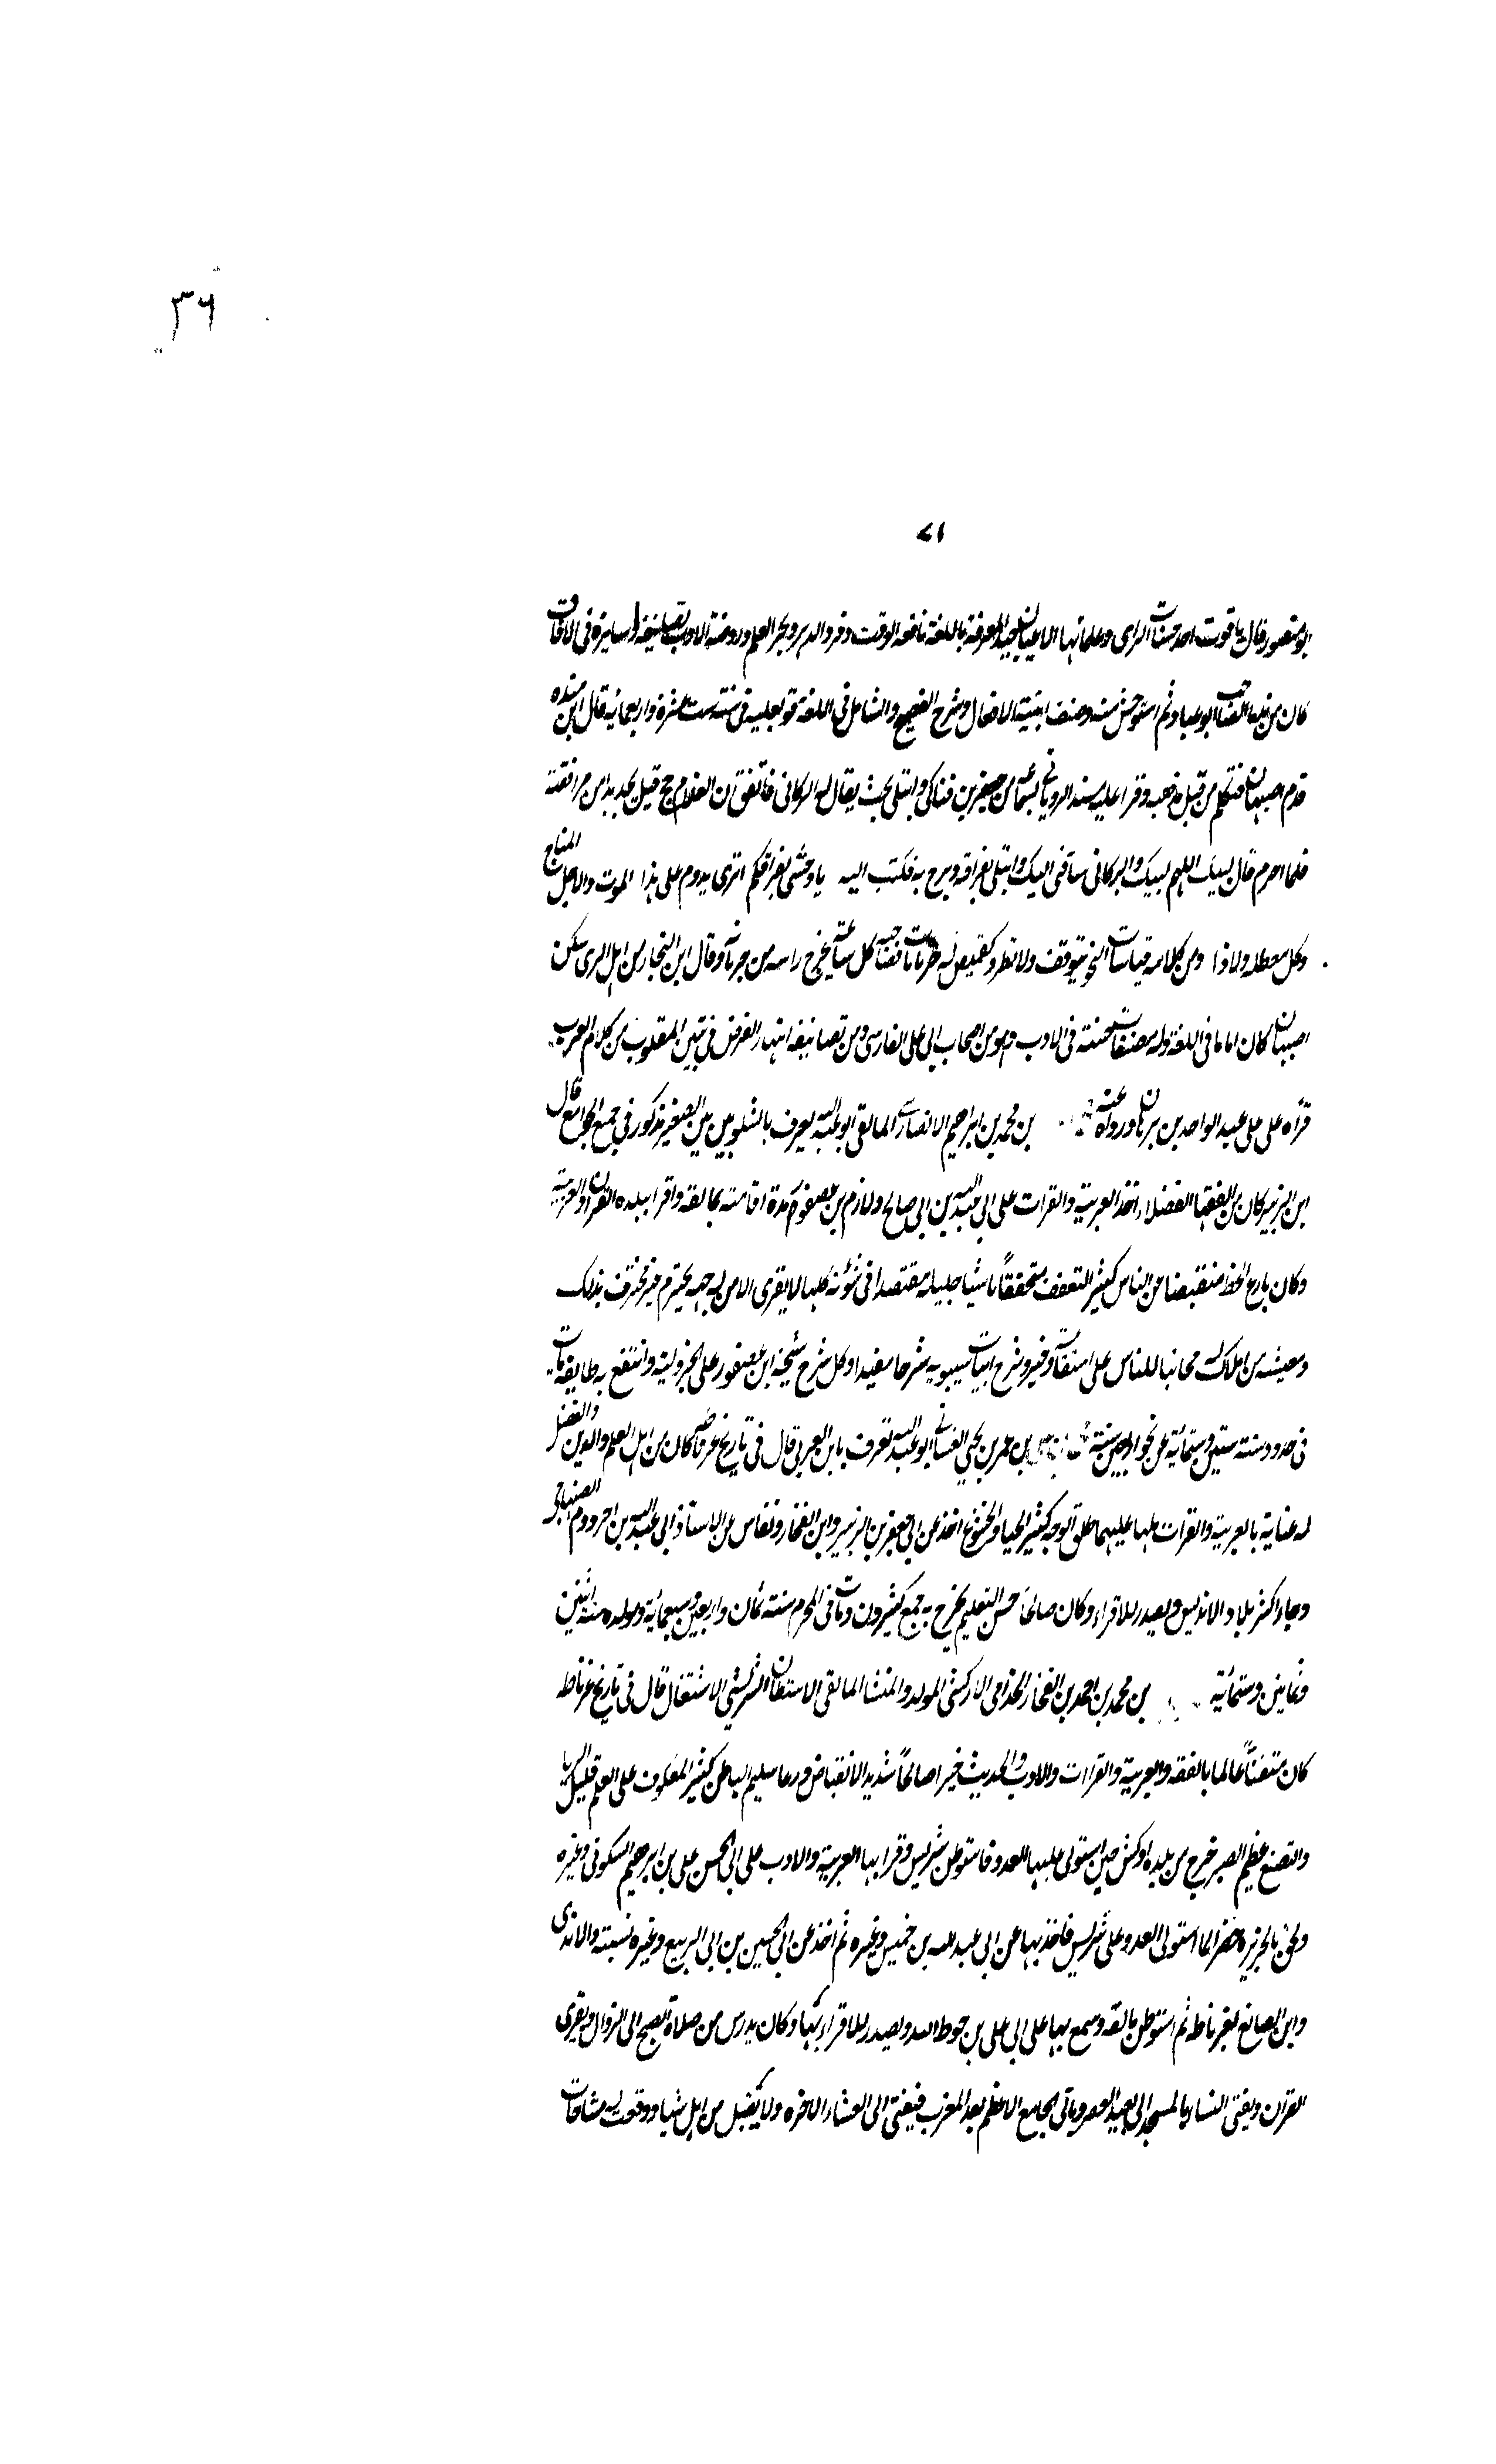 ٣٦
٧١
ابو منصور قال ياقوت احد حسنات الرى وعلمائها الاعيان جيد المعرفة باللغة باقعة الوقت وفرد الدهر وبحر العلم وروضة الادب تصانيفه سايرة فى الافاق
كان من ندماء الصاحب ابو عباد ثم استوحش منه وصنف ابنية الافعال وشرح الفصيح والشامل فى اللغة قرى عليه فى سنة ست عشرة واربعمائة قال ابن منده
قدم اصبهان فتكلم من قبل مذهبه وقرا عليه مسند الرويانى بسماعه من جعفر بن فناكى وابتلى بحب يقال له البركانى فاتفق ان الغلام حج قيل يجد بدا من مرافقته
فلما احرم قال لبيك اللهم لبيك والبركانى ساقنى اليك وابتلى بفراقه وبرح به فكتب اليه يا وحشتى لفراقكم اترى يدوم على هذا الموت والاجل المتاح
وكل معضلة ولا ذا ومن كلامه قياسات النحو تتوقف ولا تطرد كقميص له خربانات فصاحبه كل ساعة يخرج راسه من جربانه وقال ابن النجار من اهل الرى سكن
اصبهان كان اماما فى اللغة وله مصنفات حسنة فى الادب وهو من اصحاب ابى على الفارسى ومن تصانيفه انتهاز الفرص فى تبيين المقلوب من كلام العرب
قرأه على على عبد الواحد بن برهان ورواه عنه بن محمد بن ابراهيم الانصارى المالقى ابو عبد الله يعرف بالشلوبين الصغير مذكور فى جمع الجوامع قال
ابن الزبير كان من الفقها الفضلاء اخذ العربية والقرات على ابى عبد الله بن ابى صالح ولازم بن عصفور مدة اقامته بمالقة واقرا ببلده القران والعربية
وكان بارع الخط منقبضا من الناس كثير التعفف متحققا باشيا جليلة مقتصدا فى شؤنه كلها لا يقرى الا من له جهة يحترم غير محترف بذلك
ومعيشته من املاك له مجانبا للناس على استقامة وخير وشرح ابيات سيبويه شرحا مفيدا وكمل شرح شيخه ابن عصفور على الجزولية وانتفع به طايفة مات
فى حدود سنة ستين وستمائة عن نحو اربعين سنة بن عمر بن يحيى الغسانى ابو عبد الله يعرف بابن العربى قال فى تاريخ غرناطة كان من اهل العلم والدين والفضل
له عناية بالعربية والقرات طلق الوجه كثير الحيا والخشوع اخذ عن ابى جعفر بن الزبير وابن الفخار وبفاس عن الاستاذ ابى عبد الله بن اجروم الصنهاجى
وجاء اكثر بلاد الاندلس وتصدر للاقراء وكان صالحا حسن التعليم يخرج به جمع كثيرون ومات فى المحرم سنة ثمان واربعين وسبعمائة ومولده سنة اثنين
وثمانين وستمائة بن محمد بن احمد بن الفخار الجذامى الاركشى المولد والمنشا المالقى الاستيطان الشريشى الاشتغال قال فى تاريخ غرناطة
كان متفننا عالما بالفقه والعربية والقراات والادب والحديث خيرا صالحا شديد الانقباض ورعا سليم الباطن كثير العكوف على العلم قليل الريا
والتصنع عظيم الصبر خرج من بلده اركش حين استولى عليها العدو فاستوطن شريش وقرا بها العربية والادب على ابى الحسن على بن ابرهيم السكونى وغيره
ولحق بالجزيرة خضرا لما استولى العدو على شريش فاخذ بها عن ابى عبد الله بن خميس وغيره ثم اخذ عن ابى الحسين بن ابى الربيع وغيره بسبتة والابدى
وابن الصائغ بغرناطة ثم استوطن مالقة وسمع بها على ابى على بن حوط الله وتصدر للاقراء بها وكان يدرس من صلاة الصبح الى الزوال ويقرى
القران ويفتى النسا بالمسجد الى بعيد العصر وياتى الجامع الاعظم بعد المغرب فيفتى الى العشاء الاخرة ولا يقبل من اهل شيا ووقعت له مشاحات